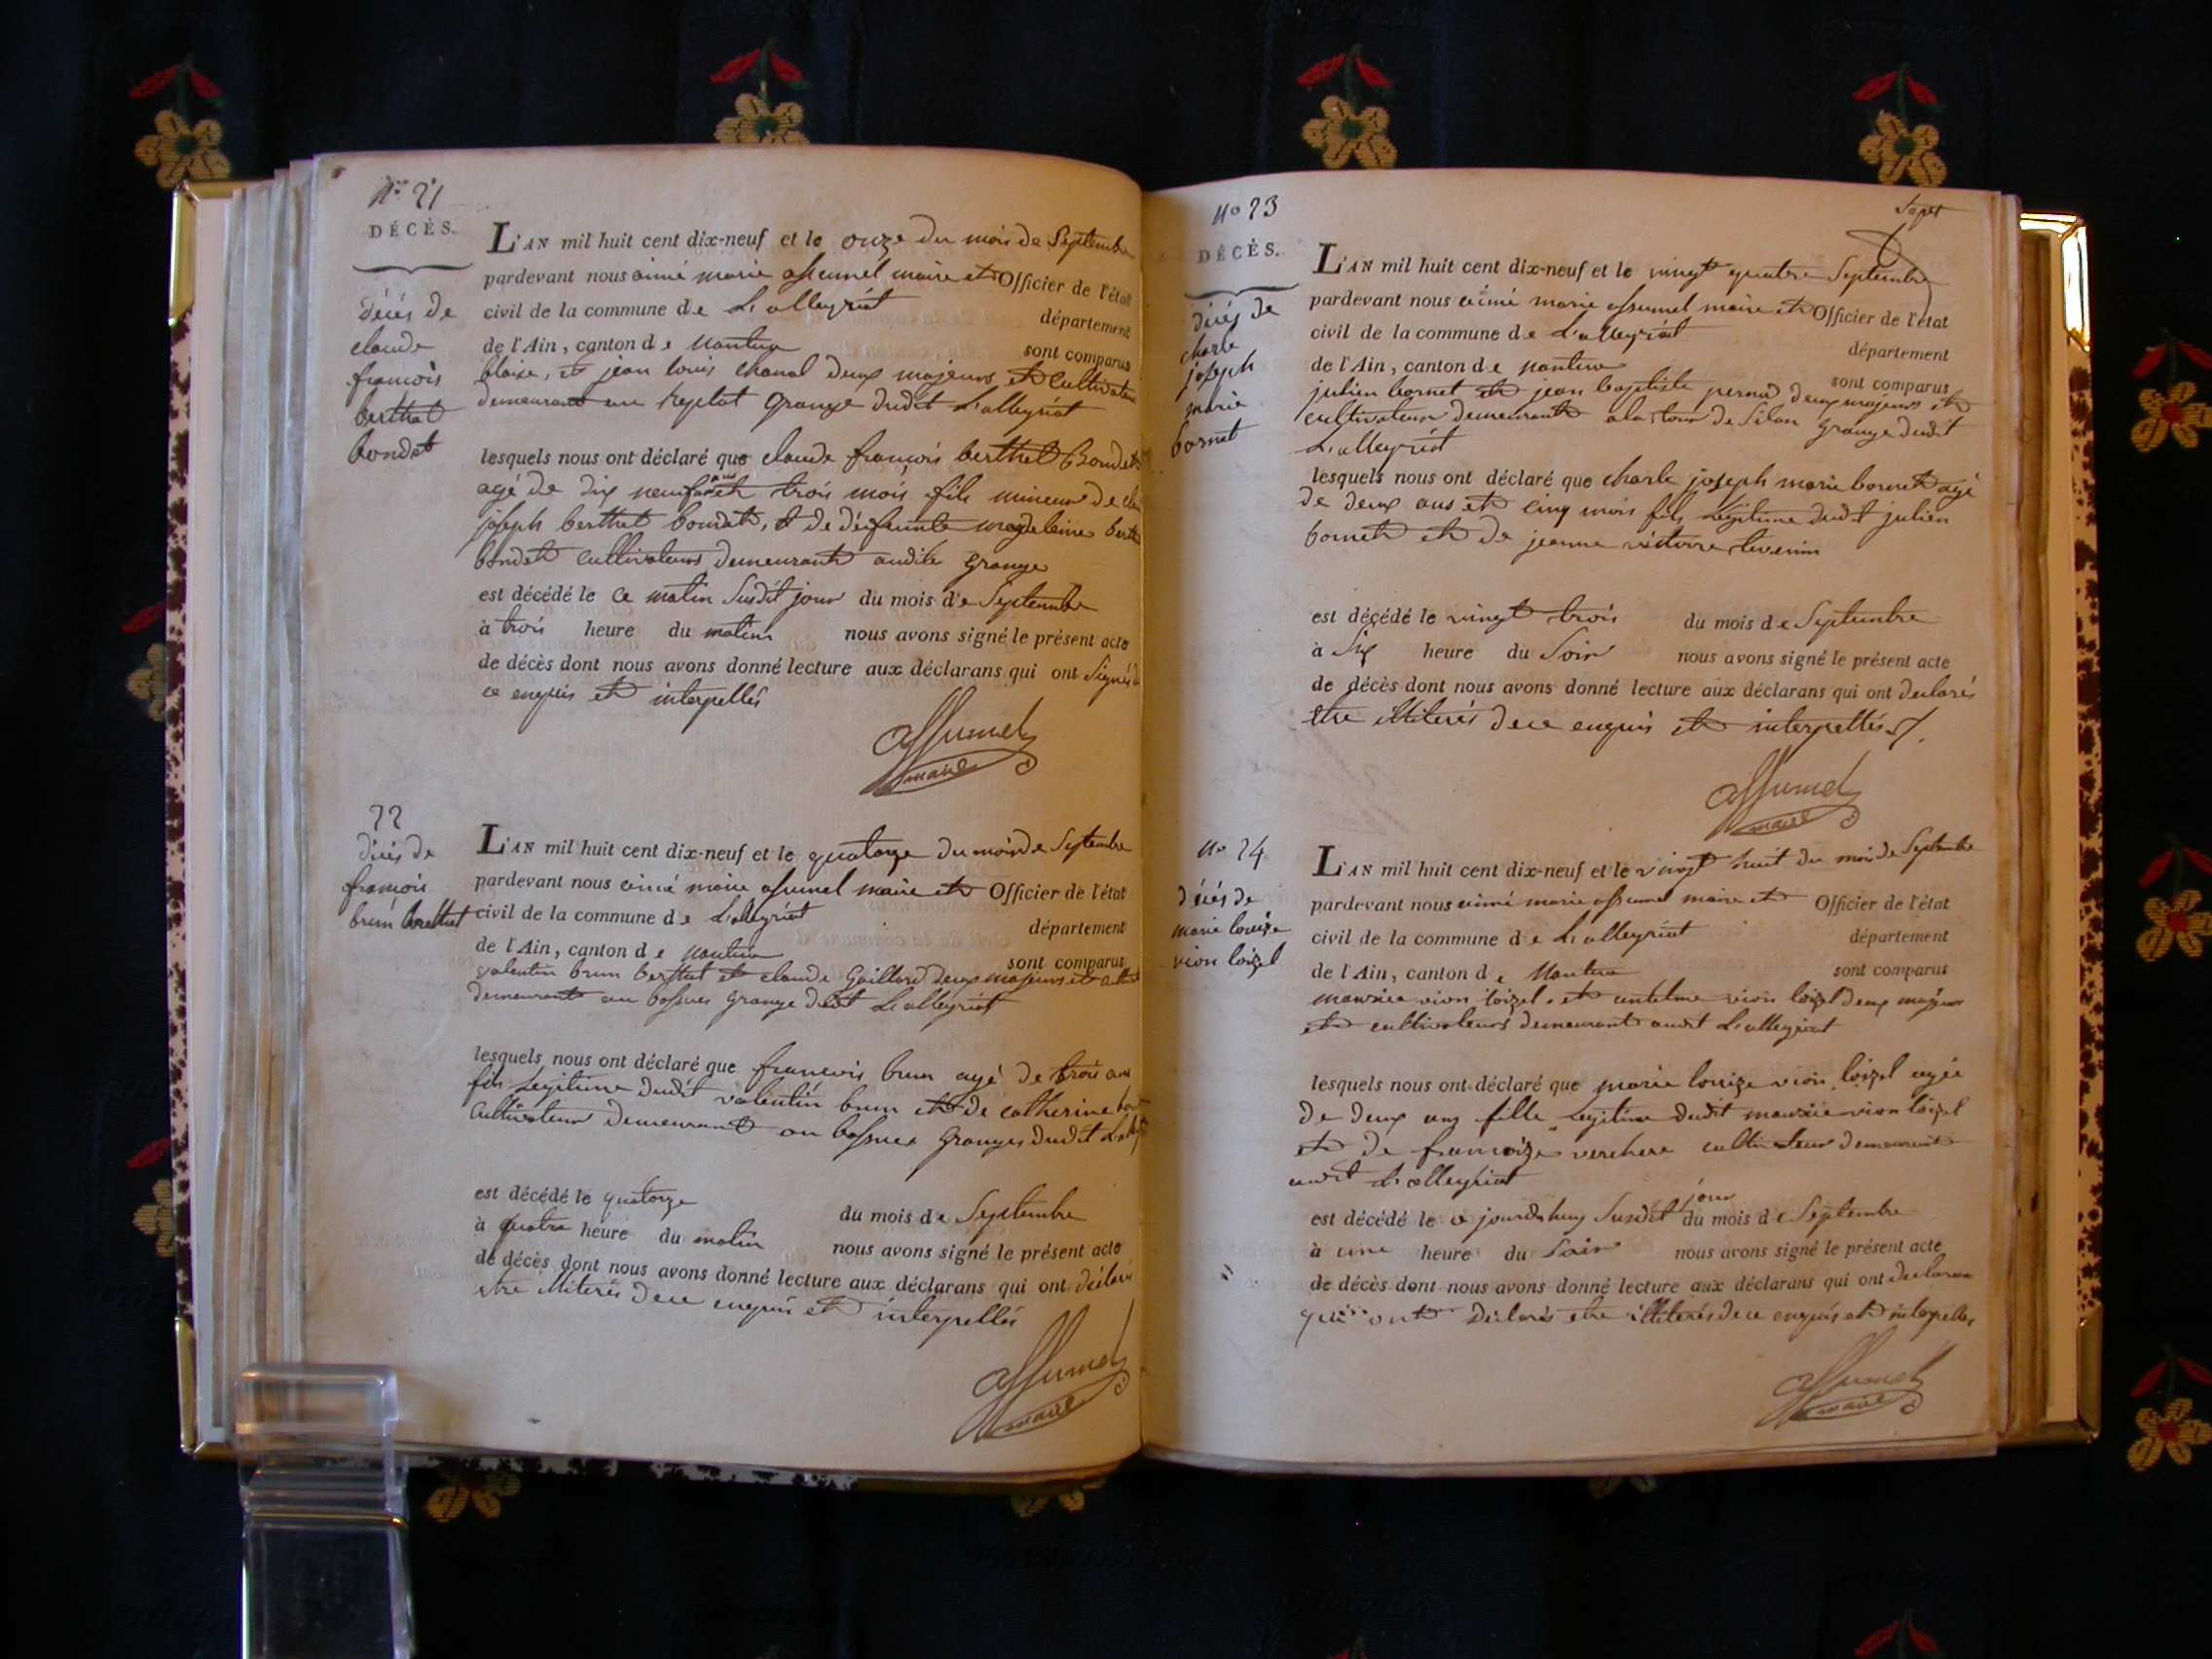 N° 21
DÉCÈS.
décés de
claude
francois
berthet
bondet
L'AN mil huit cent dix-neuf et le onze du mois de Septembre
pardevant nous aimé marie assumel maire et Officier de l'état
civil de la commune de L'alleyriat département
de l'Ain, canton de nantua sont comparus
blaise, et jean louis chanal deux majeurs et Cultivateurs
demeurant au replat grange dudit L'alleyriat
lesquels nous ont déclaré que claude françois berthet Bondet
agé de dix neuf ans et trois mois fils mineur de
joseph berthet bondet, & de défeunte magdelaine
bondet cultivateurs demeurant audite grange
est décédé le ce matin Susdit jour du mois de Septembre
à trois heure du matin nous avons signé le présent acte
de décès dont nous avons donné lecture aux déclarans qui ont Signés de
ce enquis et interpellés
assumel
maire
22
décés de
francois
brun berthet
L'AN mil huit cent dix-neuf et le quatorze du mois de Septembre
pardevant nous aimé marie assumel maire et Officier de l'état
civil de la commune de L'alleyriat département
de l'Ain, canton de nantua sont comparus
valentin brun berthet et claude Gaillard deux majeurs et
demeurant au grange dudit L'alleyriat
lesquels nous ont déclaré que francois brun agé de trois ans
fils Legitime dudit valentin brun et de catherine
Cultivateur demeurant au granges dudit
est décédé le quatorze du mois de Septembre
à quatre heure du matin nous avons signé le présent acte
de décès dont nous avons donné lecture aux déclarans qui ont déclaré
etre illiterés de ce enquis et interpellés
assumel
maire
N° 23
Sept
DÉCÈS.
décés de
charle
joseph
marie
bornet
L'AN mil huit cent dix-neuf et le vingt quatre Septembre
pardevant nous aimé marie assumel maire et Officier de l'état
civil de la commune de L'alleyriat département
de l'Ain, canton de nantua sont comparus
julien bornet et jean baptiste deux majeurs et
cultivateur demeurant a la tour de Silan grange dudit
L'alleyriat
lesquels nous ont déclaré que charle joseph marie bornet agé
de deux ans et cinq mois fils Legitime dudit julien
bornet et de jeanne victoire
est décédé le vingt trois du mois de Septembre
à Six heure du Soir nous avons signé le présent acte
de décès dont nous avons donné lecture aux déclarans qui ont declarés
etre illiterés de ce enquis et interpellés
assumel
maire
N° 24
décés de
marie louize
vion loizel
L'AN mil huit cent dix-neuf et le vingt huit du mois de Septembre
pardevant nous aimé marie assumel maire et Officier de l'état
civil de la commune de L'alleyriat département
de l'Ain, canton de Nantua sont comparus
maurice vion loizel, et antelme vion loizel deux majeur
et cultivateurs demeurant audit L'alleyriat
lesquels nous ont déclaré que marie louize vion loizel agée
de deux ans fille Legitime dudit maurice vion loizel
et de francoize verchere cultivateur demeurant
audit L'alleyriat
est décédé le ce jourdhuy Susdit jour du mois de Septembre
à une heure du Soir nous avons signé le présent acte
de décès dont nous avons donné lecture aux déclarans qui ont
qui ont declarés etre illiterés de ce enquis et interpelles
assumel
maire